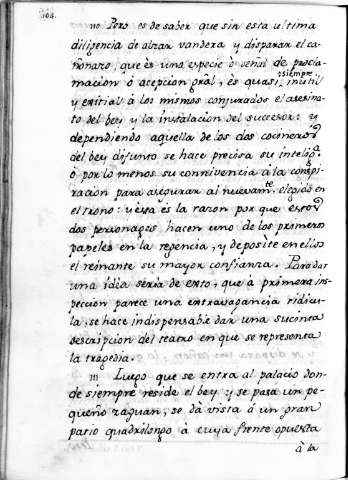 104.
110 Pero es de saber que sin esta ultima
diligencia de alzar vandera y disparar el ca-
ñonazo, que es una especie ò señal de procla-
macion ò acepcion gral, es quasi siempre inutil
y exitial à los mismos conjurados el asesina-
to del bey y la instalacion del succesor: y
dependiendo aquella de los dos cocineros
del bey difunto se hace precisa su inteligª.
ò por lo menos su connivencia à la conspi-
racion para asegurar al nuevamte. elegido en
el trono: y esta es la razon por que estos
dos personages hacen uno de los primeros
papeles en la regencia, y deposite en ellos
el reinante su mayor confianza. Para dar
una idia seria de esto, que à primera ins-
peccion parece una extravagancia ridicu-
la, se hace indispensable dar una sucinta
descripcion del teatro en que se representa
la tragedia.
111 Luego que se entra al palacio don-
de siempre reside el bey y se pasa un pe-
queño zaguan, se dà vista à un gran
patio quadrilongo à cuya frente opuesta
à la